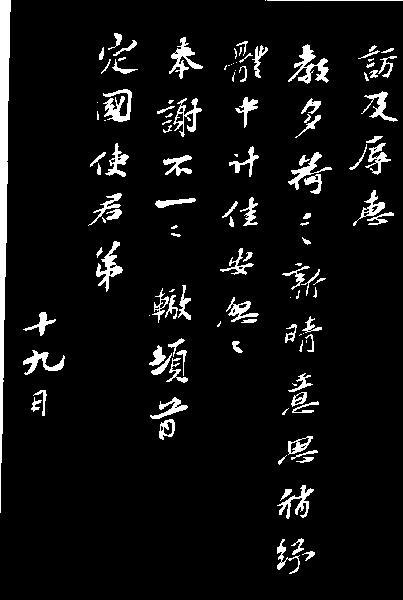 訪及辱惠
教多荷〻新晴意思稍紓
體中計佳安怱〻
奉謝不一〻 轍頓首
定國使君弟
十九日